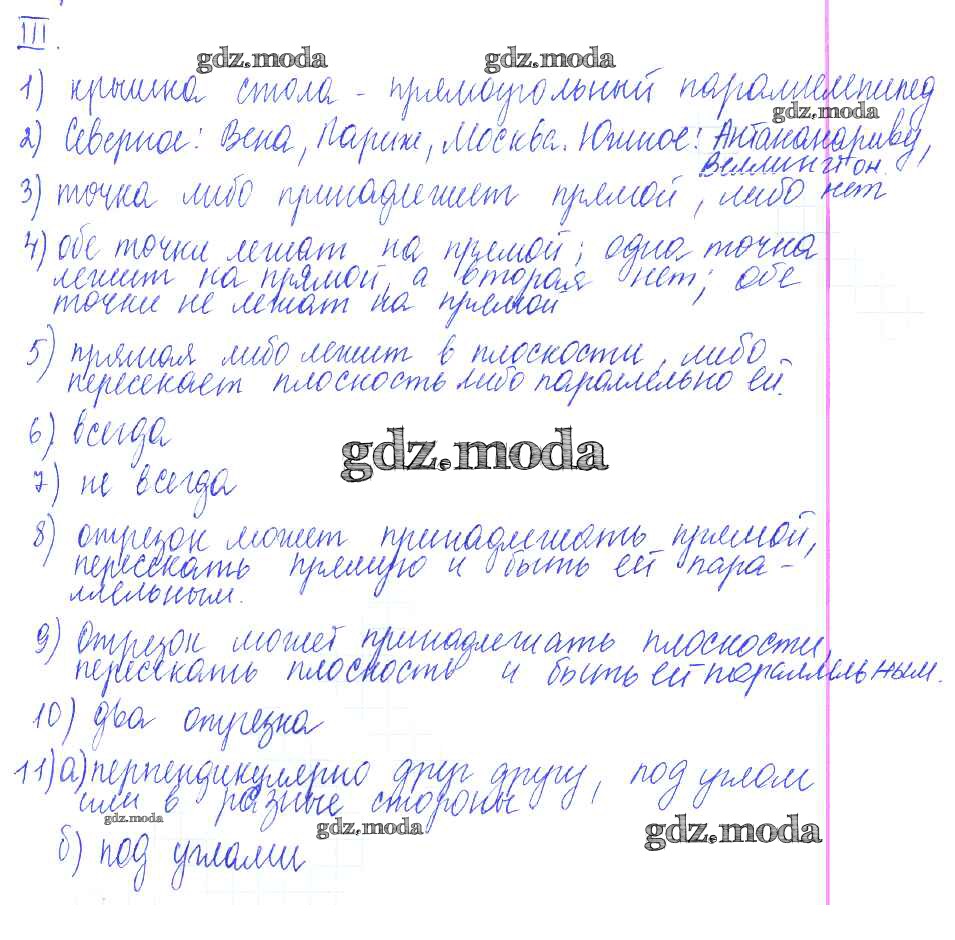 III.
gdz.moda gdz.moda
1) крышка стола - прямоугольный параллелепипед
gdz.moda
2) Северное: Вена, Париж, Москва. Южное: Антананариву,
Веллингтон.
3) точка либо принадлежит прямой, либо нет
4) обе точки лежат на прямой; одна точка
лежит на прямой, а вторая нет; обе
точки не лежат на прямой
5) прямая либо лежит в плоскости, либо
пересекает плоскость либо параллельно ей.
6) всегда
gdz.moda
7) не всегда
8) отрезок может принадлежать прямой,
пересекать прямую и быть ей пара-
ллельным.
9) Отрезок может принадлежать плоскости,
пересекать плоскость и быть ей параллельным.
10) два отрезка
11) а) перпендикулярно друг другу, под углом
или в разные стороны
gdz.moda gdz.moda gdz.moda
б) под углами